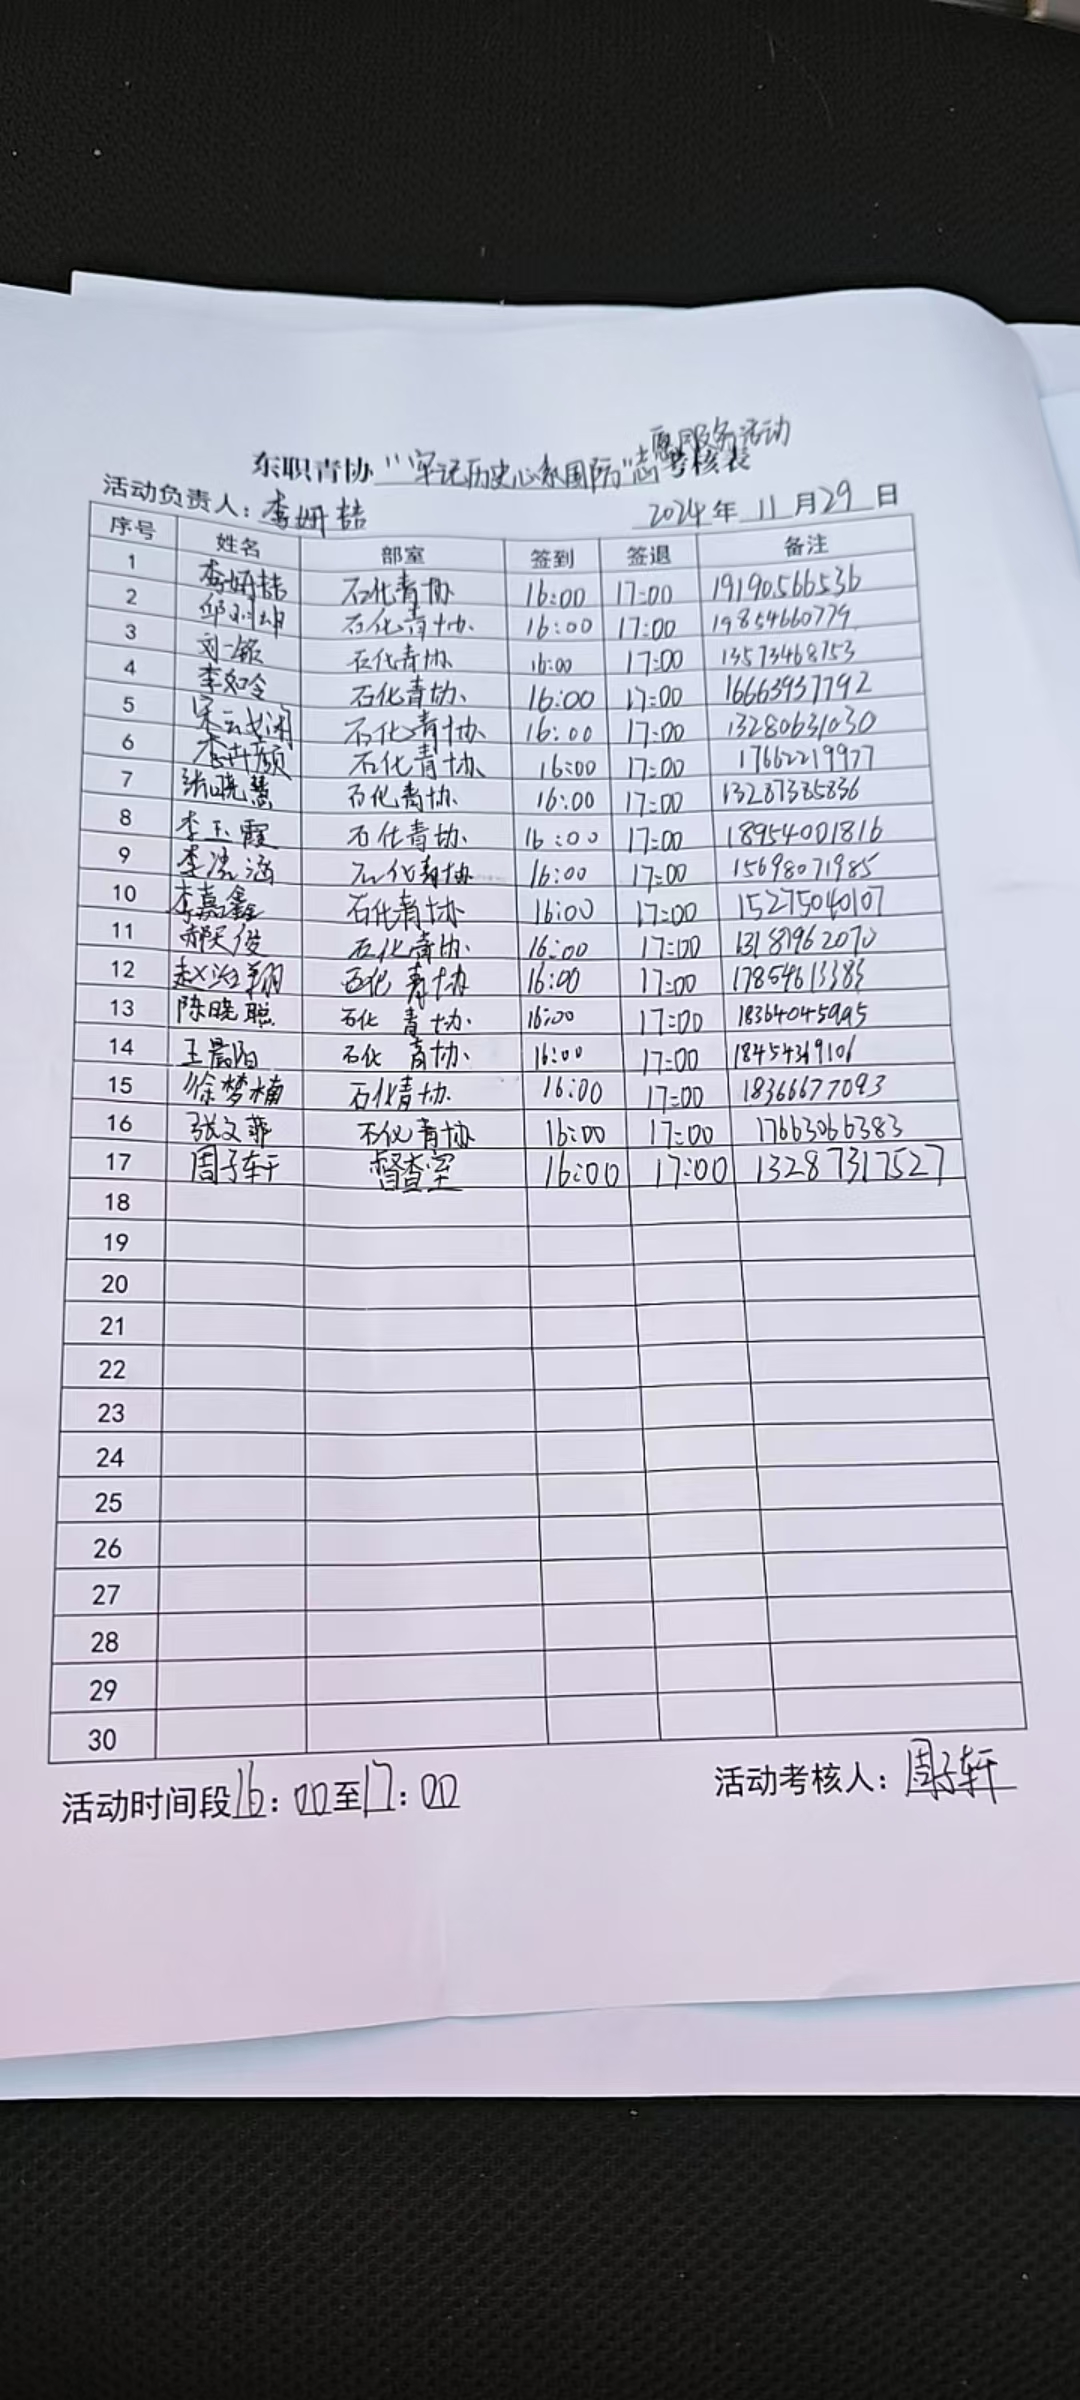 东职青协“牢记历史心系国防”志愿服务活动考核表
活动负责人：李妍喆 2024年11月29日
序号 姓名 部室 签到 签退 备注
1 李妍喆 石化青协 16:00 17:00 19190566536
2 石化青协 16:00 17:00 19854660779
3 石化青协 16:00 17:00 13573468753
4 李如令 石化青协 16:00 17:00 16663937792
5 石化青协 16:00 17:00 13280631030
6 石化青协 16:00 17:00 17662219977
7 张晓慧 石化青协 16:00 17:00 13287385836
8 李玉霞 石化青协 16:00 17:00 18954001816
9 李浩涵 石化青协 16:00 17:00 15698071985
10 李嘉鑫 石化青协 16:00 17:00 15275040107
11 郝天俊 石化青协 16:00 17:00
12 石化青协 16:00 17:00 17854613383
13 陈晓聪 石化青协 16:00 17:00 18364045995
14 王晨阳 石化青协 16:00 17:00 18454369106
15 徐梦楠 石化青协 16:00 17:00 18366677093
16 张文菲 石化青协 16:00 17:00 17663066383
17 周子轩 督查室 16:00 17:00 13287317527
18
19
20
21
22
23
24
25
26
27
28
29
30
活动时间段16：00至17：00 活动考核人：周子轩